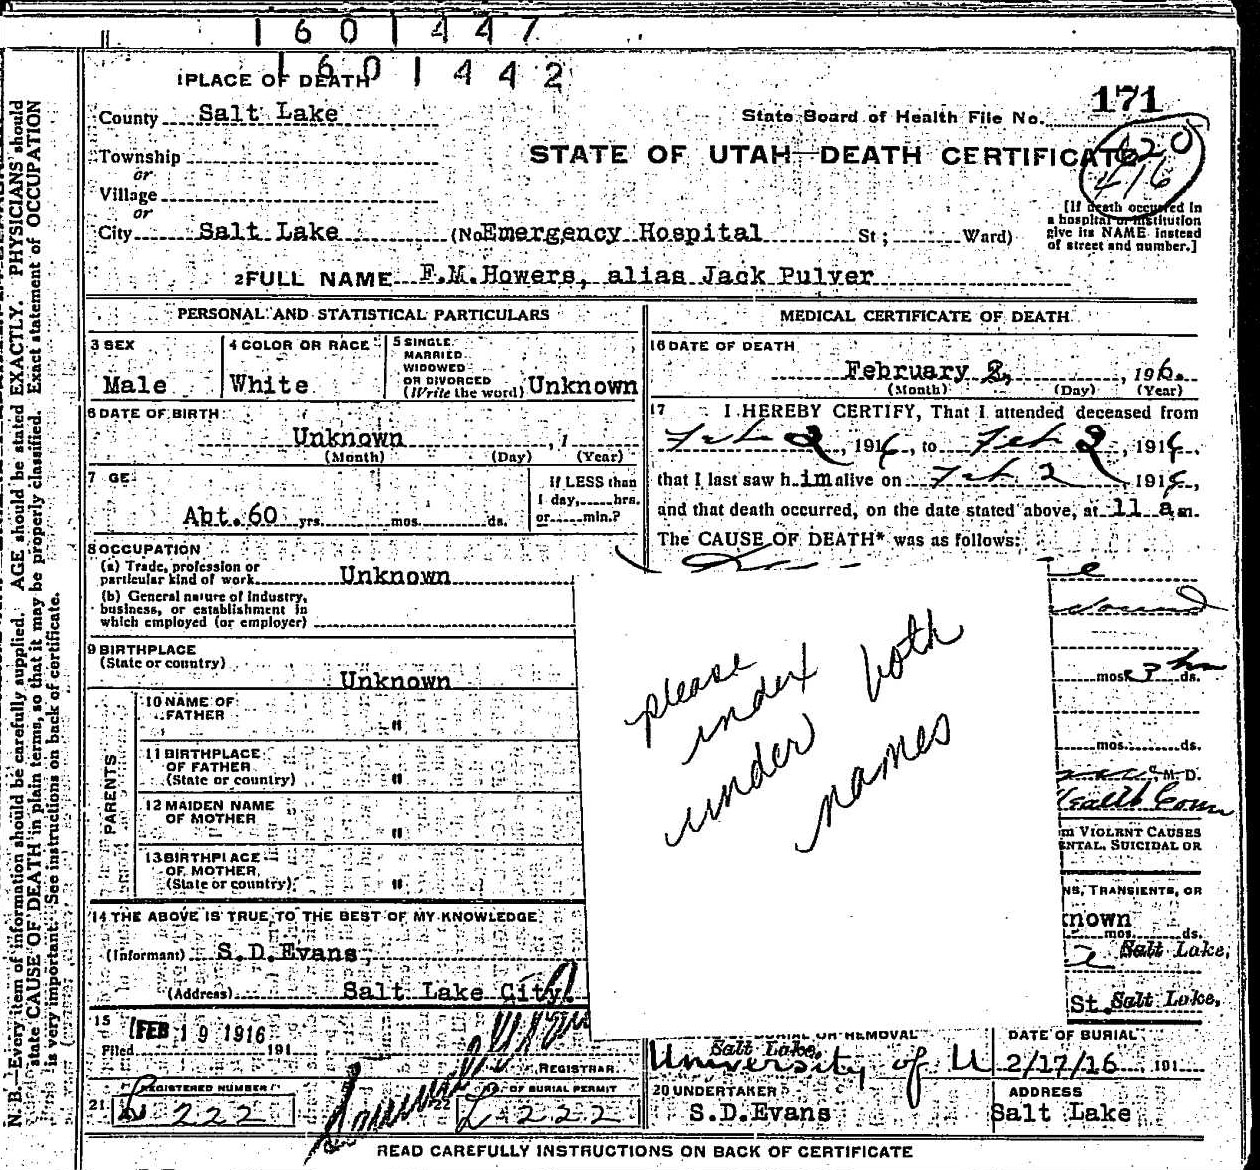 1601447
1601442
1 PLACE OF DEATH
County Salt Lake
Township
or
Village
or
City Salt Lake (No Emergency Hospital St; Ward)
State Board of Health File No. 171
STATE OF UTAH—DEATH CERTIFICATE
420
416
[If death occurred in
a hospital or institution
give its NAME instead
of street and number.]
2 FULL NAME F.M.Howers, alias Jack Pulver
PERSONAL AND STATISTICAL PARTICULARS
3 SEX
Male
4 COLOR OR RACE
White
5 SINGLE
MARRIED
WIDOWED
OR DIVORCED
(Write the word) Unknown
6 DATE OF BIRTH
Unknown , 1
(Month) (Day) (Year)
7 GE
Abt.60 yrs. mos. ds.
If LESS than
1 day, hrs.
or min.?
8 OCCUPATION
(a) Trade, profession or
particular kind of work Unknown
(b) General nature of industry,
business, or establishment in
which employed (or employer)
9 BIRTHPLACE
(State or country)
Unknown
PARENTS
10 NAME OF
FATHER "
11 BIRTHPLACE
OF FATHER
(State or country) "
12 MAIDEN NAME
OF MOTHER "
13 BIRTHPLACE
OF MOTHER
(State or country) "
14 THE ABOVE IS TRUE TO THE BEST OF MY KNOWLEDGE
(Informant) S.D.Evans,
(Address) Salt Lake City.
15
Filed FEB 19 1916 191
REGISTRAR
REGISTERED NUMBER
21 L 222
22 OF BURIAL PERMIT
L 222
MEDICAL CERTIFICATE OF DEATH
16 DATE OF DEATH
February 2, , 1916.
(Month) (Day) (Year)
17 I HEREBY CERTIFY, That I attended deceased from
Feb 2, 1916, to Feb 2, 1916,
that I last saw h im alive on Feb 2, 1916,
and that death occurred, on the date stated above, at 11 a m.
The CAUSE OF DEATH* was as follows:
wound
mos. ds.
hrs
mos. ds.
M.D.
Health Com
m VIOLENT CAUSES
ENTAL, SUICIDAL OR
NS, TRANSIENTS, OR
known
mos. ds.
Salt Lake,
St. Salt Lake,
please
index both
under
names
OR REMOVAL
Salt Lake,
University of U
DATE OF BURIAL
2/17/16 , 191
20 UNDERTAKER
S.D.Evans
ADDRESS
Salt Lake
READ CAREFULLY INSTRUCTIONS ON BACK OF CERTIFICATE
N. B.—Every item of information should be carefully supplied. AGE should be stated EXACTLY. PHYSICIANS should
state CAUSE OF DEATH in plain terms, so that it may be properly classified. Exact statement of OCCUPATION
is very important. See instructions on back of certificate.